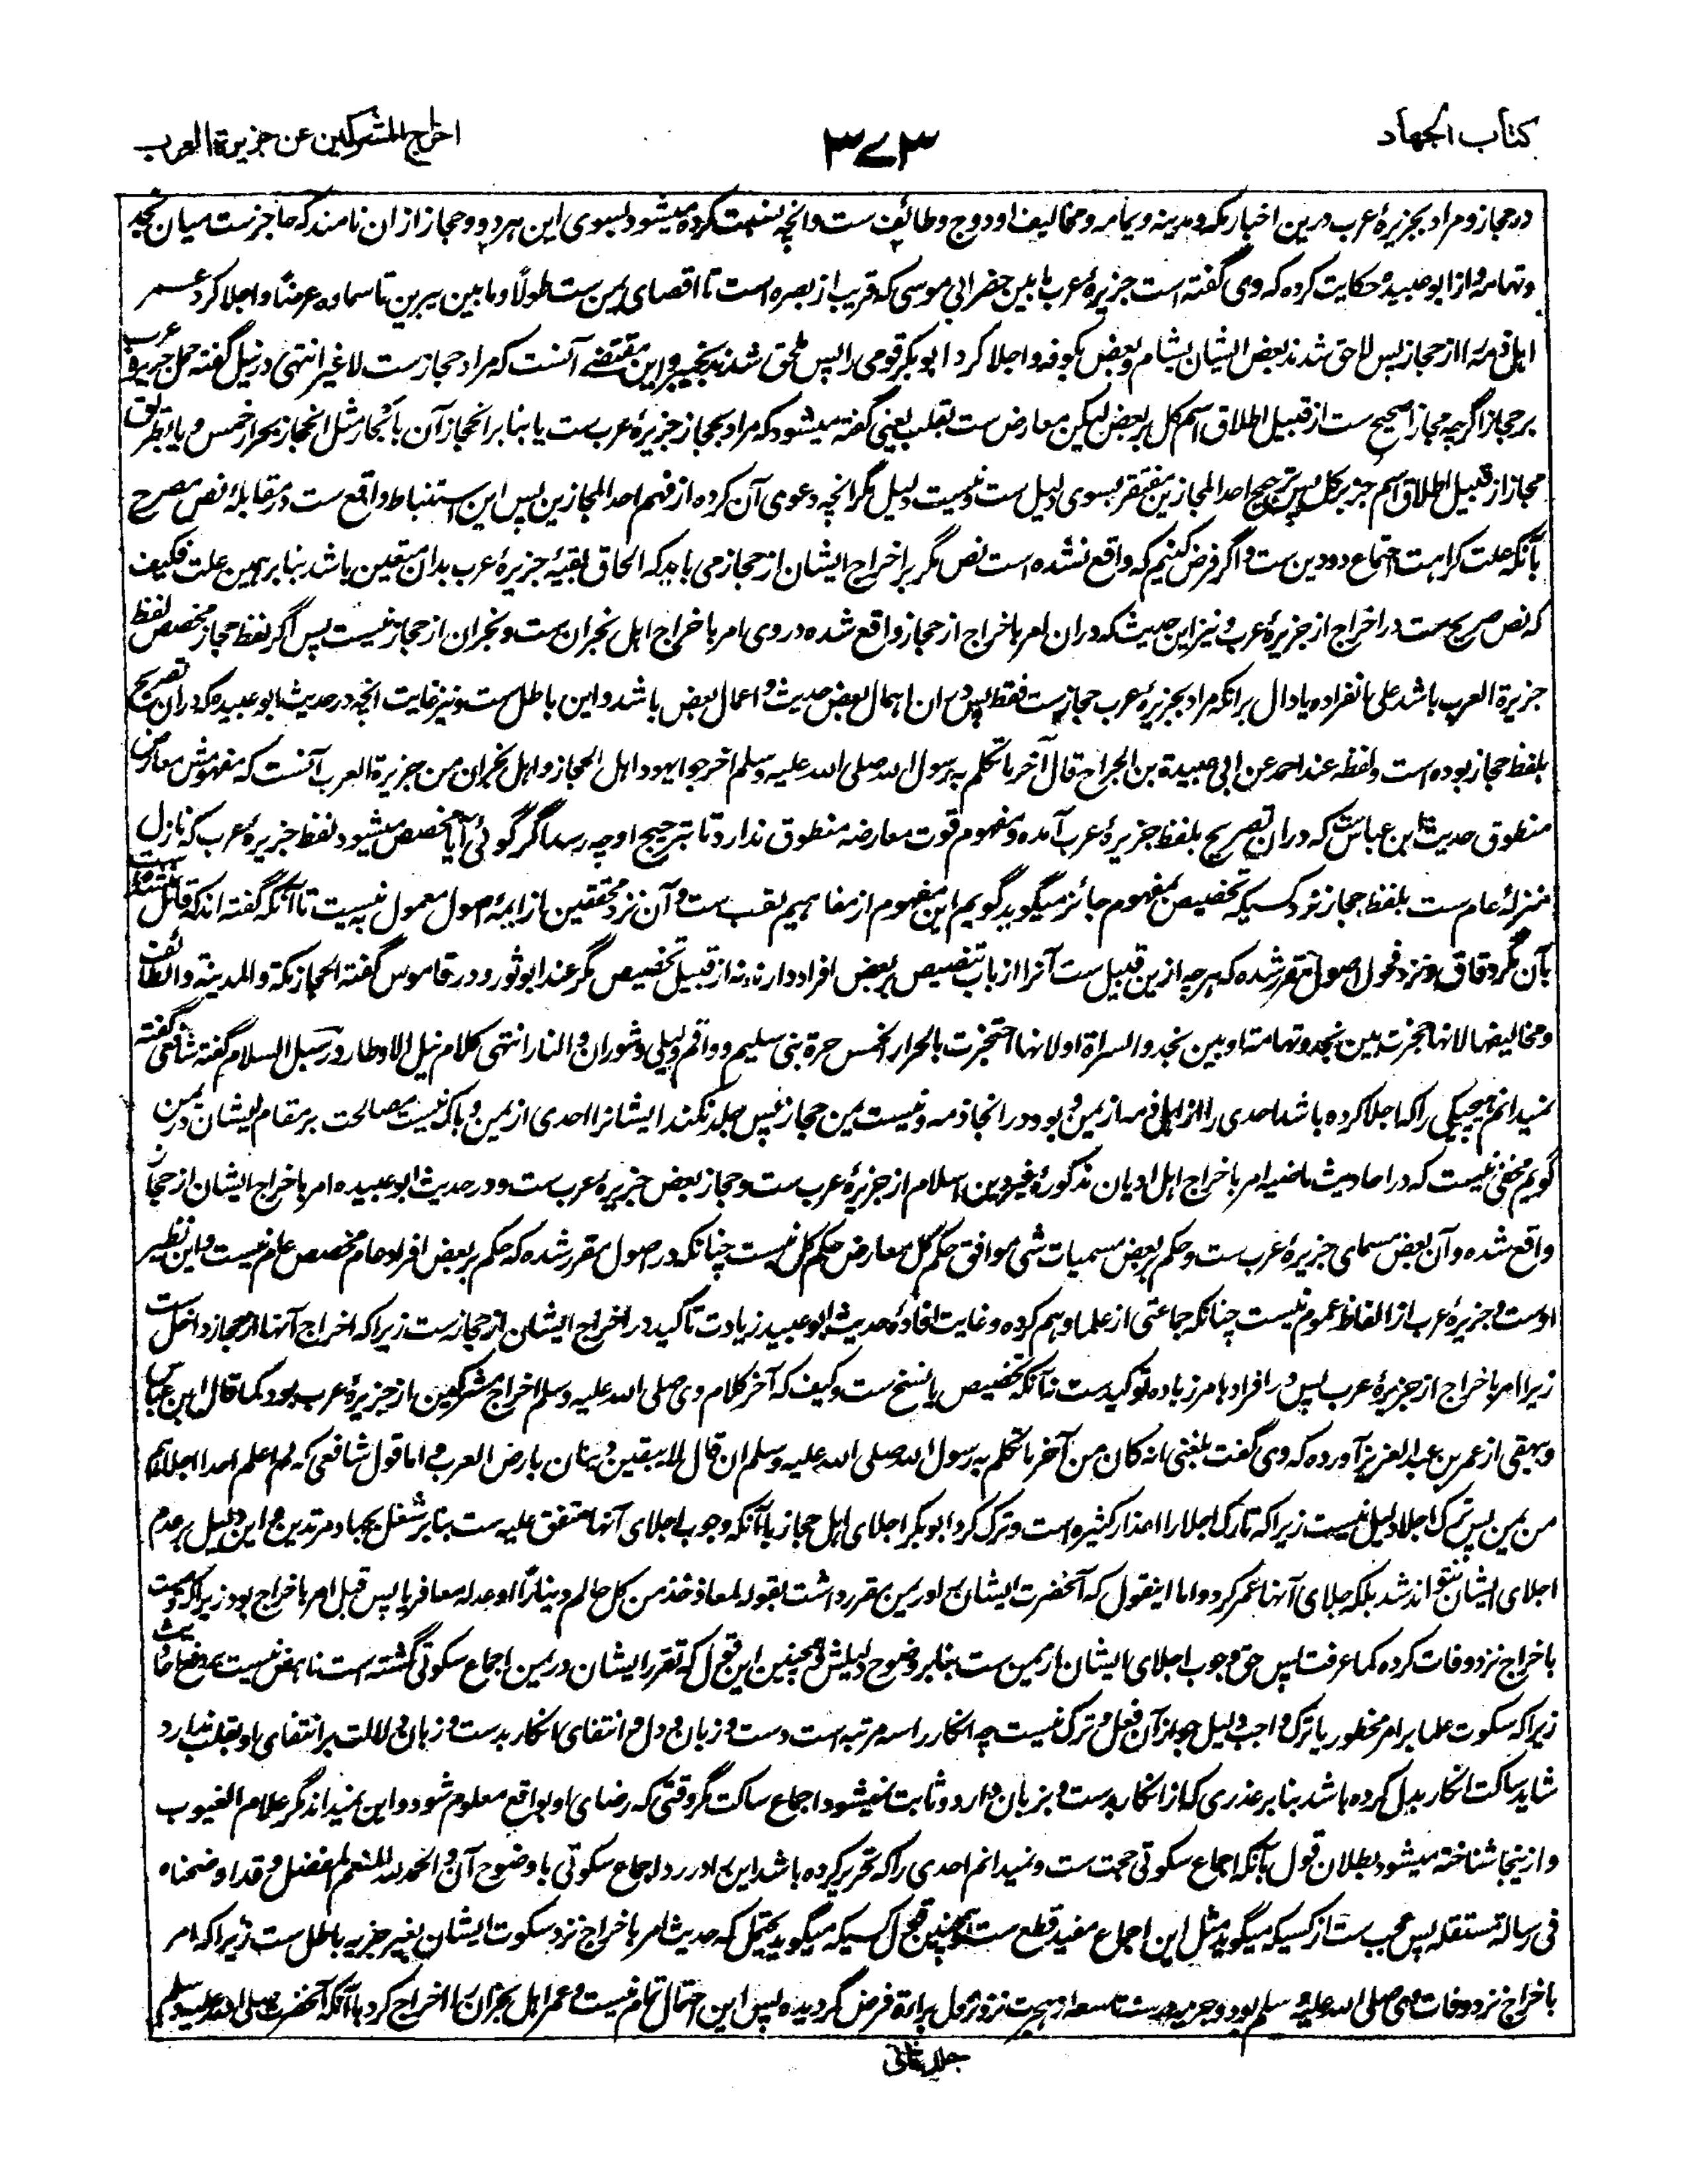 کتاب الجهاد
۳۷۳
اخراج المشرکین عن جزیرة العرب
در حجاز و مراد بجزیرۂ عرب درین اخبار مکه و مدینه و یمامه و مخالیف او و وج و طائف ست وانچه نسبت کرده میشود بسوی این هر دو و حجاز ازان نامند که حاجزست میان نجد
و تهامه و از ابو عبیده حکایت کرده که وی گفته است جزیرۂ عرب مابین حفر ابی موسی که قریب از بصره است تا اقصای یمن ست طولاً و مابین یبرین تا سماوه عرضاً و اجلا کرد عمر
اهل ذمه را از حجاز پس لاحق شدند بعض ایشان بشام و بعض بکوفه و اجلا کرد ابوبکر قومی را پس ملحق شدند بخیبر و این مقتضی آنست که مراد حجازست لاغیر انتهی در نیل گفته حمل جزیرۂ عرب
بر حجاز اگرچه مجازاً صحیح ست از قبیل اطلاق اسم کل بر بعض لیکن معارض ست بقلب یعنی گفته میشود که مراد بحجاز جزیرۂ عرب ست یا بنا بر انحجاز آن بابحار مثل انحجاز بحرار خمس و یا بطریق
مجاز از قبیل اطلاق اسم جزء بر کل پس ترجیح احد المجازین مفتقر بسوی دلیل ست و نیست دلیل مگر انچه دعوی آن کرده از فهم احد المجازین پس این استنباط واقع ست در مقابلۂ نص مصرح
بآنکه علت کراهت اجتماع دو دین ست و اگر فرض کنیم که واقع نشده است نص مگر بر اخراج ایشان از حجاز می باید که الحاق بقیۂ جزیرۂ عرب بدان متعین باشد بنا بر همین علت فکیف
که نص صریح ست در اخراج از جزیرۂ عرب و نیز این حدیث که دران امر باخراج از حجاز واقع شده در وی امر باخراج اهل نجران ست و نجران از حجاز نیست پس اگر لفظ حجاز مخصص لفظ
جزیرة العرب باشد علی انفراده یا دال برانکه مراد بجزیرۂ عرب حجازست فقط پس دران اهمال بعض حدیث و اعمال بعض باشد و این باطل ست و نیز غایت انچه در حدیث ابو عبیده که دران تصریح
بلفظ حجاز بوده است ولفظه عند احمد عن ابی عبیدة بن الجراح قال آخر ما تکلم به رسول الله صلی الله علیه وسلم اخرجوا یهود اهل الحجاز و اهل نجران من جزیرة العرب آنست که مفهومش معارض
منطوق حدیث ابن عباس ست که دران تصریح بلفظ جزیرۂ عرب آمده و مفهوم قوت معارضه منطوق ندارد تا بترجیح او چه رسد اگر گوئی آیا مخصص میشود لفظ جزیرۂ عرب که نازل
بمنزلۂ عام ست بلفظ حجاز نزد کسیکه تخصیص بمفهوم جائز میگوید گویم این مفهوم از مفاهیم لقب ست و آن نزد محققین از ایمۂ اصول معمول به نیست تا آنکه گفته اند که قائل نیست
بآن مگر دقاق و نزد فحول اصول متقرر شده که هرچه ازین قبیل ست آنرا از باب تنصیص بر بعض افراد دارند نه از قبیل تخصیص مگر عند ابو ثور و در قاموس گفته الحجاز مکة والمدینة والطائف
ومخالیفها لانها حجزت بین نجد وتهامة او بین نجد والسراة او لانها احتجزت بالحرار الخمس حرة بنی سلیم و واقم ولیلی وشوران والنار انتهی کلام نیل الاوطار در سبل السلام گفته شافعی گفته
نمیدانم هیچیکی را که اجلا کرده باشد احدی را از اهل ذمه از یمن و بود در انجا ذمه و نیست یمن حجاز پس جلد نکند ایشانرا احدی از یمن و باک نیست بمصالحت بر مقام ایشان در یمن
گویم مخفی نیست که در احادیث ماضیه امر باخراج اهل ادیان مذکوره غیر دین اسلام از جزیرۂ عرب ست و حجاز بعض جزیرۂ عرب ست و در حدیث ابو عبیده امر باخراج ایشان از حجاز
واقع شده و آن بعض مسمای جزیرۂ عرب ست و حکم بر بعض مسمیات شی موافق حکم کل معارض حکم کل نیست چنانکه در اصول مقرر شده که حکم بر بعض افراد عام مخصص عام نیست و این نظیر
اوست و جزیرۂ عرب از الفاظ عموم نیست چنانکه جماعتی از علما وهم کرده و غایت افادۂ حدیث ابو عبیده زیادت تاکید در اخراج ایشان از حجازست زیراکه اخراج آنها از حجاز داخل ست
زیر امر باخراج از جزیرۂ عرب پس در افراد بامر زیاده توکید ست نه آنکه تخصیص یا نسخ ست و کیف که آخر کلام وی صلی الله علیه وسلم اخراج مشرکین از جزیرۂ عرب بود کما قال ابن عباس
و بیهقی از عمر بن عبدالعزیز آورده که وی گفت بلغنی انه کان من آخر ما تکلم به رسول الله صلی الله علیه وسلم ان قال لا یبقین دینان بارض العرب و اما قول شافعی که لم اعلم احدا اجلاهم
من یمن پس ترک اجلا دلیل نیست زیراکه تارک اجلا را اعذار کثیره است و ترک کرد ابوبکر اجلای اهل حجاز با آنکه وجوب اجلای آنها متفق علیه ست بنا بر شغل بجهاد مرتدین و این دلیل بر عدم
اجلای ایشان نتواند شد بلکه جلای آنها عمر کرد و اما اینقول که آنحضرت ایشان را در یمن مقرر داشت بقوله لمعاذ خذ من کل حالم دیناراً او عدله معافریا پس قبل امر باخراج بود زیراکه وصیت
باخراج نزد وفات کرده کما عرفت پس حق وجوب اجلای ایشان از یمن ست بنابر وضوح دلیلش و همچنین این قول که تقرر ایشان در یمن اجماع سکوتی گشته است ناهض نیست بدفع احادیث
زیراکه سکوت علما بر امر محظور یا ترک واجب دلیل جواز آن فعل و ترک نیست چه انکار را سه مرتبه است دست و زبان و دل و انتفای انکار بدست و زبان دلالت بر انتفای او بقلب ندارد
شاید ساکت انکار بدل کرده باشد بنا بر عذری که از انکار بدست و بزبان دارد و ثابت نمیشود اجماع ساکت مگر وقتی که رضای او بواقع معلوم شود و این نمیداند مگر علام الغیوب
و ازینجا شناخته میشود بطلان قول بآنکه اجماع سکوتی حجت ست و نمیدانم احدی را که تحریر کرده باشد این را در رد اجماع سکوتی با وضوح آن و الحمد لله المنعم المفضل وقد اوضحناه
فی رسالة مستقلة پس عجب ست از کسیکه میگوید مثل این اجماع مفید قطع ست و همچنین قول کسیکه میگوید یحتمل که حدیث امر باخراج نزد سکوت ایشان بغیر جزیه باطل ست زیراکه امر
باخراج نزد وفات وی صلی الله علیه وسلم بود و جزیه در سنۀ تاسعه از هجرت نزد نزول براءة فرض گردیده پس این احتمال تمام نیست و عمر اهل نجران را اخراج کرد با آنکه آنحضرت صلی الله علیه وسلم
جلد ثانی